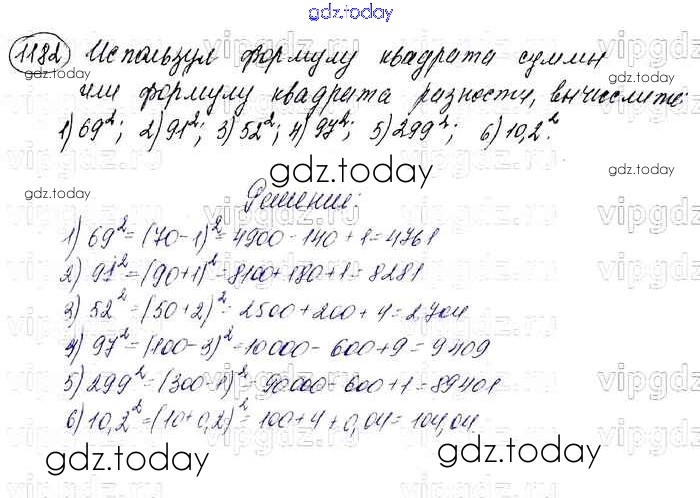 gdz.today
1182 Используя формулу квадрата суммы
или формулу квадрата разности, вычислите:
1) 69²; 2) 91²; 3) 52²; 4) 97²; 5) 299²; 6) 10,2².
gdz.today gdz.today
Решение:
1) 69² = (70-1)² = 4900 - 140 + 1 = 4761
2) 91² = (90+1)² = 8100 + 180 + 1 = 8281
3) 52² = (50+2)² = 2500 + 200 + 4 = 2704
4) 97² = (100-3)² = 10000 - 600 + 9 = 9409
5) 299² = (300-1)² = 90000 - 600 + 1 = 89401
6) 10,2² = (10+0,2)² = 100 + 4 + 0,04 = 104,04
gdz.today gdz.today